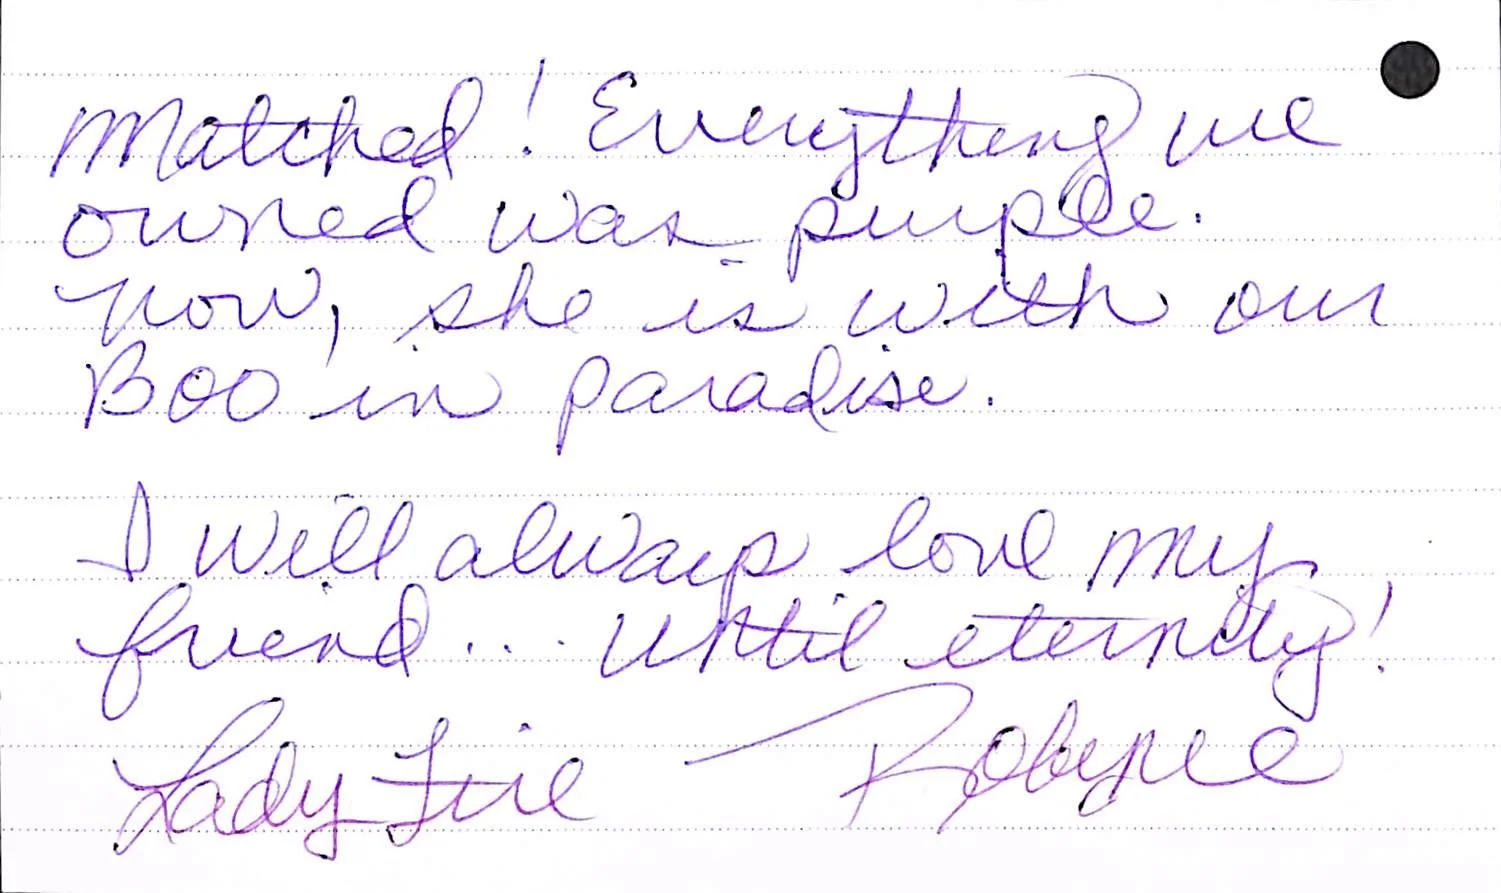 Matched! Everything we
owned was purple.
Now, she is with our
Boo in paradise.
I will always love my
friend... until eternity!
Lady Fire Robynee